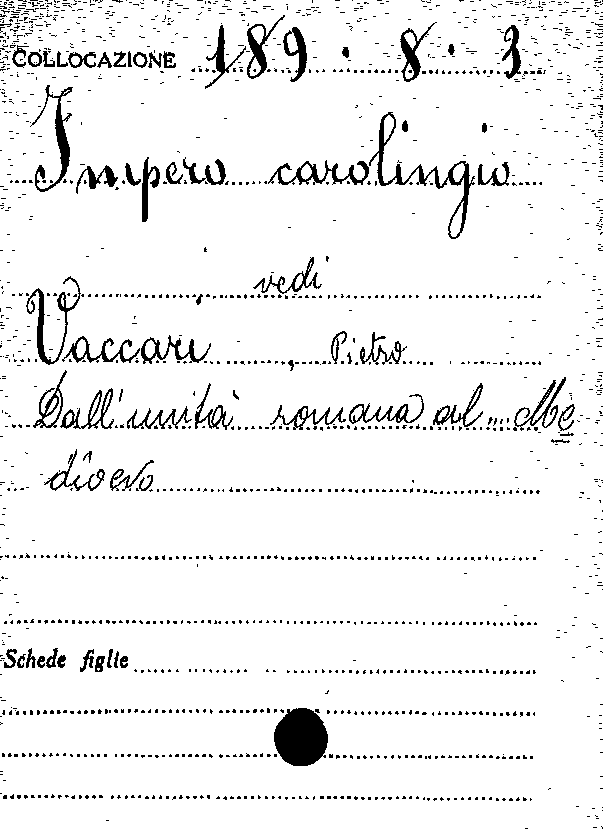 COLLOCAZIONE 189 · 8 · 3
Impero carolingio
vedi
Vaccari, Pietro
Dall'unità romana al Me
dioevo
Schede figlie